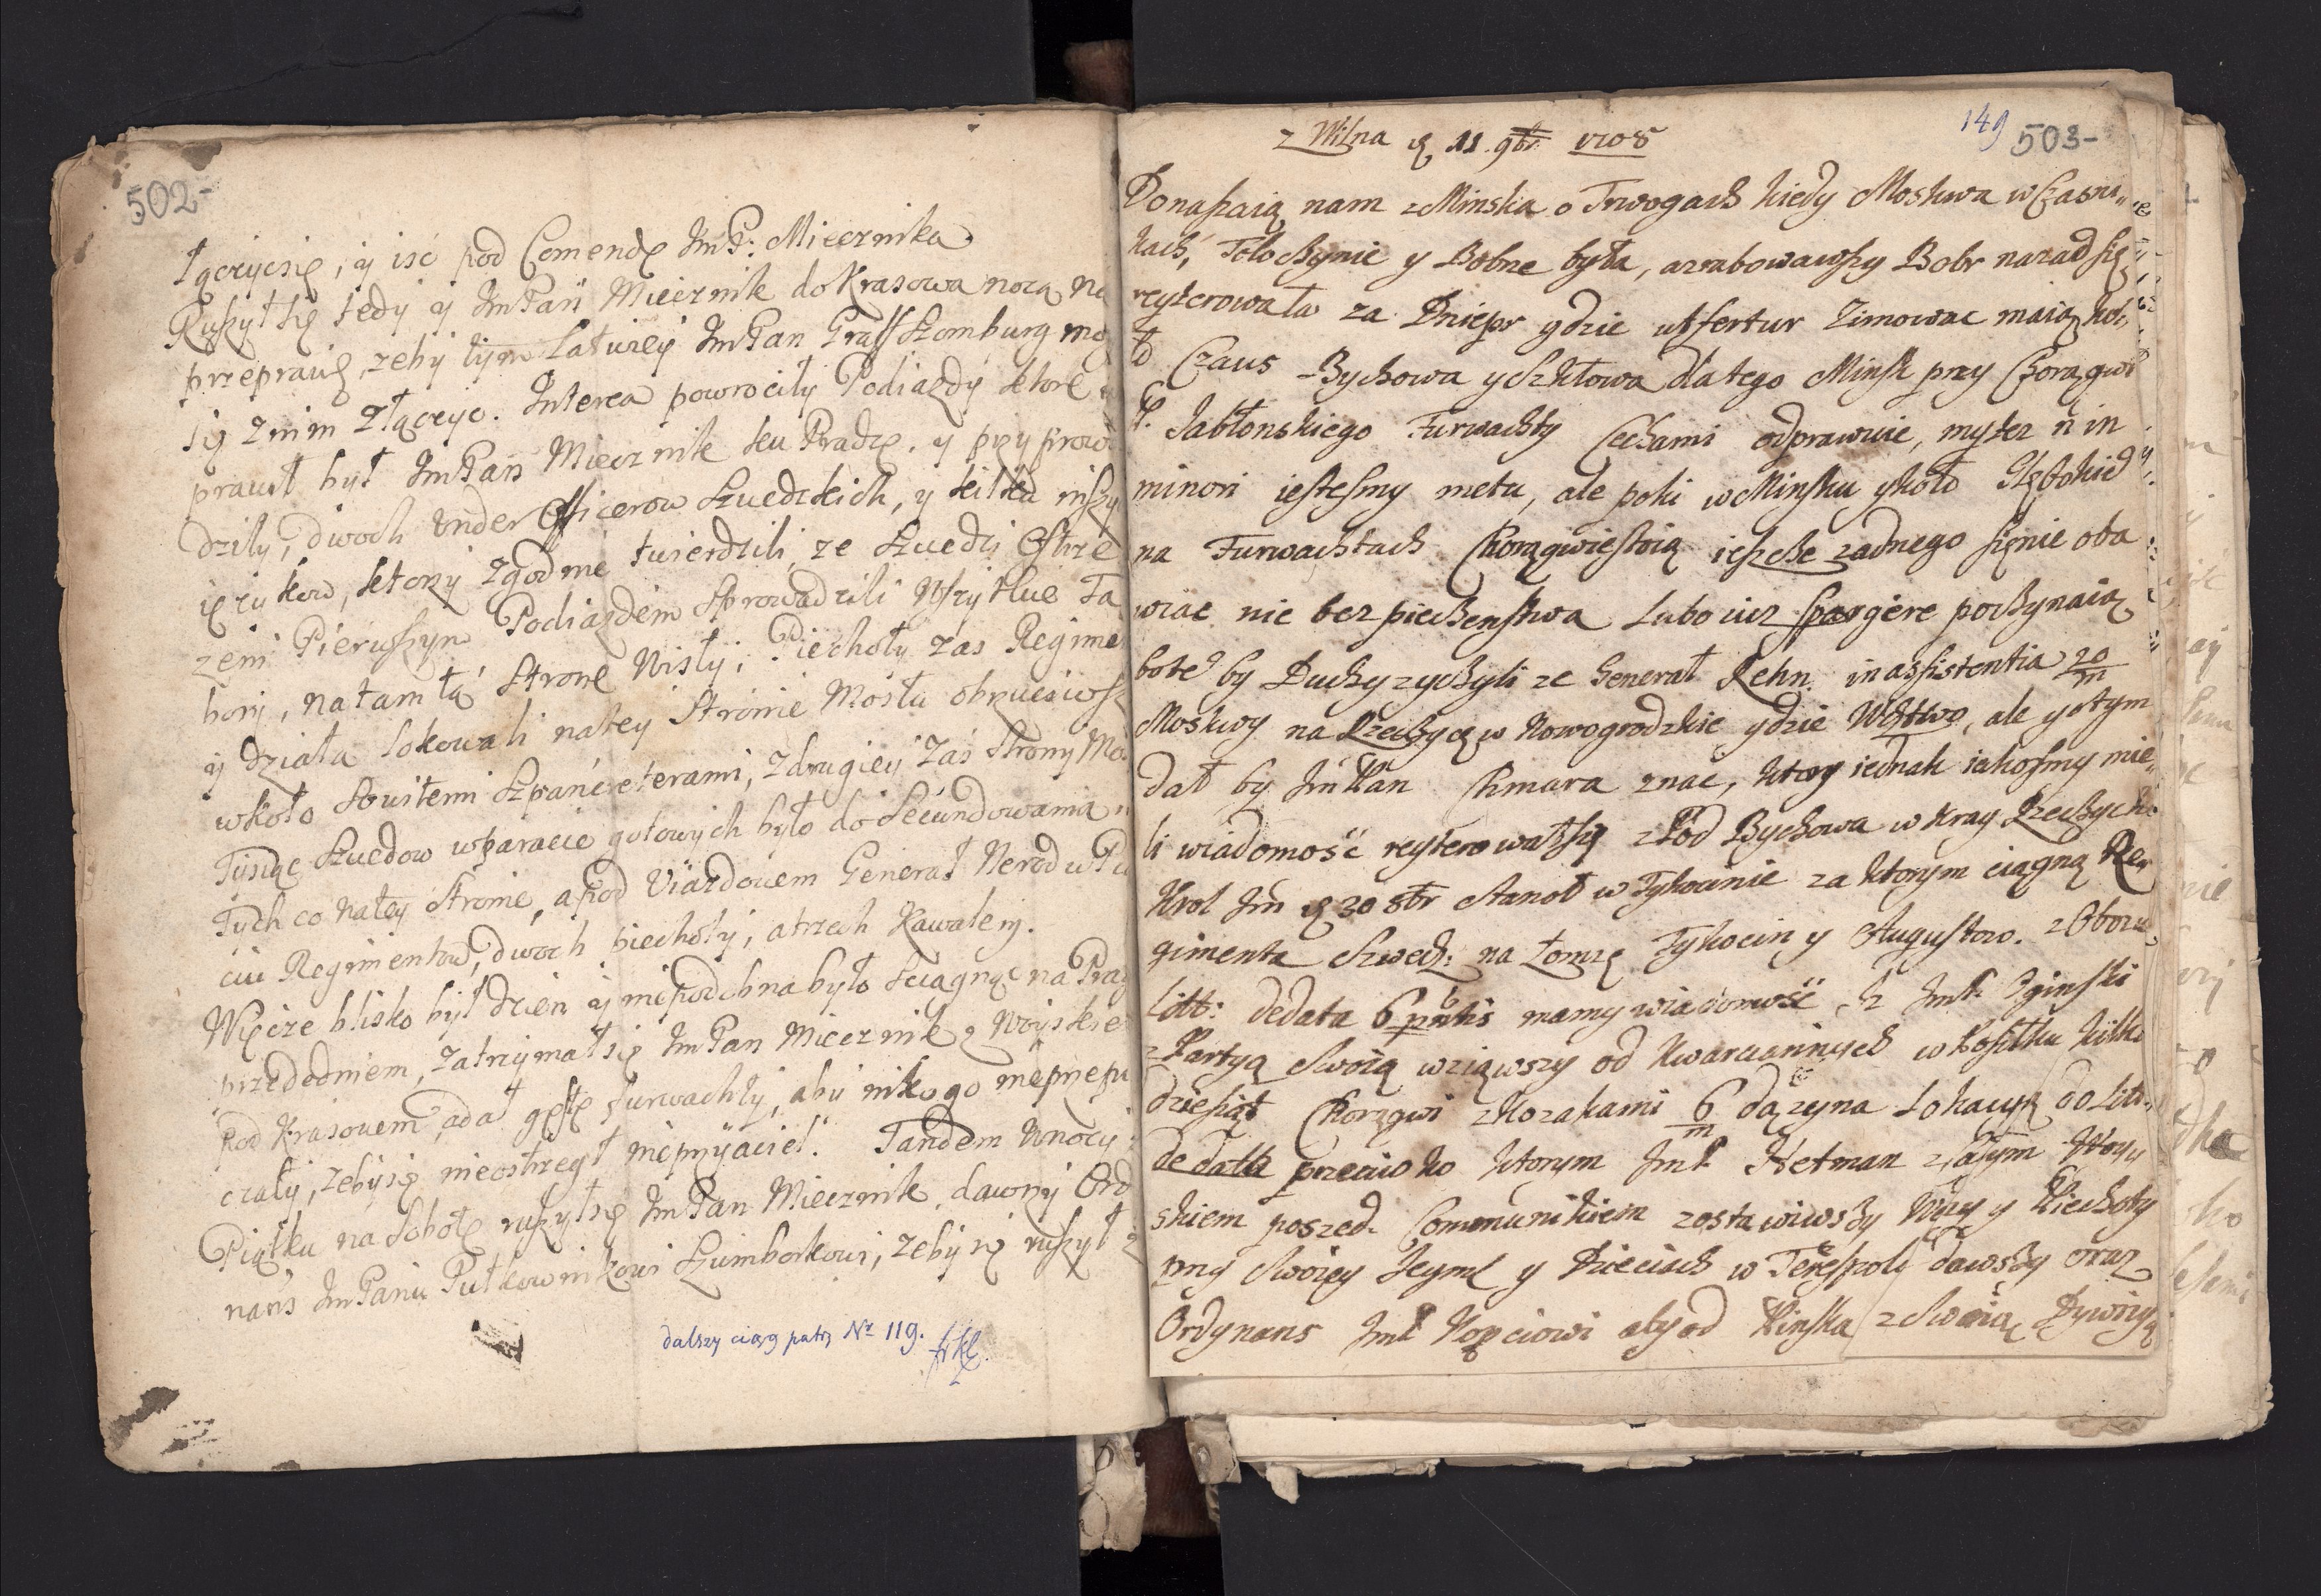 502-
łączycsię, ÿ isć pod Comendę ImP: Miecznika
Ruszył się tedy ÿ ImPan Miecznik do Krasowa nocą na
przeprawę, zeby tym łatwiey ImPan Graff Szomburg mo
się znim złączyc. Interea powrociły Podiazdy ktore
prawił był ImPan Miecznik ku Pradze, y przyprow
dziły, dwoch Underofficerow Szwedzkich, y kilka inszy
ięzykow, ktorzy zgodnie twierdzili, ze Szwedzi Ostrze
zeni Pierwszym Podiazdem Sprowadzili wszytkie Ta
bory, na tamtą Stronę Wisły; Piechoty zas Regime
ÿ działa lokowali natey Stronie Mostu obrucaiwsz
wkoło Sowitemi Szpanceterami, zdrugiey zas Strony Mo
Tysiąc Szwedow wparacie gotowych było do Secundowania
Tych co natey Stronie, a pod Uiazdowem Generał Nerod w P
ciu Regimentow, dwoch piechoty, a trzech Kawalery.
Więcże blisko był dzien ÿ niepodobna było sciągnąc na Prag
przededniem, zatrzymał się ImPan Miecznik z Woyskie
pod Krasowem, a dał gęste furwachty, aby nikogo nieprzepu
czały, zebysię nieostrzegł nieprzyiaciel. Tandem wnocy
Piątku na Sobotę ruszył się ImPan Miecznik dawszy Ord
nans ImPanu Pułkownikowi Szumborkowi, zeby się ruszył z
dalszy ciąg patrz Nr 119.
149 503-
z Wilna d. 11. 9br 1708
Donaszaią nam z Minska o Trwogach kiedy Moskwa w Czasni„
kach, Tołoczynie y Bobrze była, a zrabowawszy Bobr nazad się
reyterowała za Dniepr gdzie ut fertur Zimowac maią koł„
o Czaus Bychowa y Szkłowa dlatego Minsk przy Chorągwi
P. Jabłonskiego Furwachty Cechami odprawuie, my tez n in
minori iestesmy metu, ale poki w Minsku y koło Głębokie
na Furwachtach Chorągwie stoią ieszcze zadnego się nie oba
wiac nie bezpieczenstwa Lubo iuz spargere poczynaią
bote by Duchy zyczyli ze Generał Rehn. in assistentia 20/m
Moskwy na Rzeczycę w Nowogrodzkie ydzie Wdztwo, ale y o tym
dał by ImPan Chmara znac, ktory iednak iakosmy mie„
li wiadomosć reyterował się z Pod Bychowa w kray Rzeczycki
Krol Im d. 30 8br Stanoł w Tykocinie za ktorym ciągną Re„
gimenta Szwedz: na Łomzę Tykocin y Augustow. z Obozu
Litt: de data 6 pntis mamy wiadomość Iz ImP. Oginski
z Partyą Swoią wziąwszy od Kwarciannych w Posiłku kilka
dziesiąt Chorągwi z Kozakami 6/m dązy na Lokacyą do Litt
de data przeciwko ktorym ImP Hetman z całym Woyu
skiem poszed. Communikiem zostawiwszy Wozy y Piechoty
przy Swoiey Jeymc y Dzieciach w Terespolu dawszy oraz
Ordynans ImP Kopciowi aby od Pinska z Swoią Dywizyą